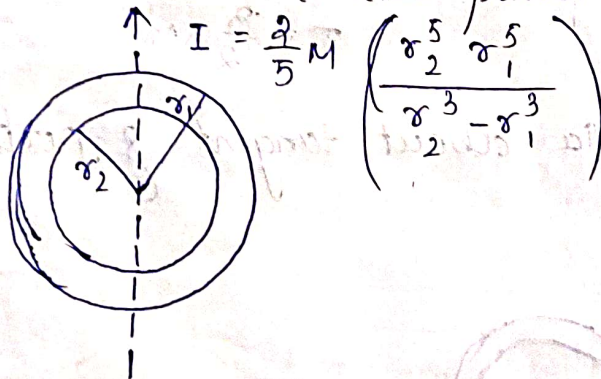 I = 2/5 M ( r₂⁵ r₁⁵ / r₂³ - r₁³ )
r₁
r₂